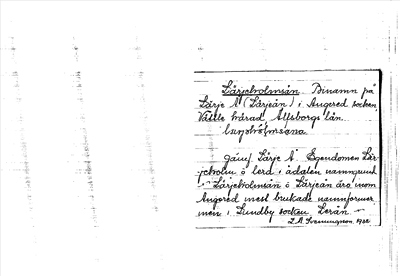 Lärjeholmsån Binamn på
Lärje Å (Lärjeån) i Angered socken,
Vättle härad Älfsborgs län.

Jämf. Lärje Å. Egendomen Lär-
jeholm ö i ådalen
Lärjeholmsån o Lärjeån äro inom
Angered mest brukade namnformer
men i Lundby socken Lerån
1932